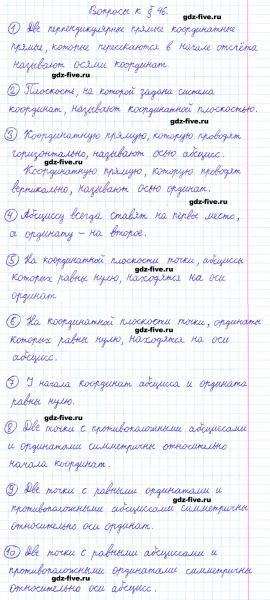 Вопросы к § 46.
gdz-five.ru
1) Две перпендикулярные прямые координатные
прямые, которые пересекаются в начале отсчёта
gdz-five.ru
называют осями координат.
gdz-five.ru
2) Плоскость, на которой задана система
координат, называют координатной плоскостью.
gdz-five.ru
3) Координатную прямую, которую проводят
gdz-five.ru
горизонтально, называют осью абсцисс.
Координатную прямую, которую проводят
gdz-five.ru
вертикально, называют осью ординат.
gdz-five.ru
4) Абсциссу всегда ставят на первое место,
а ординату - на второе.
gdz-five.ru
gdz-five.ru
5) На координатной плоскости точки, абсциссы
которых равны нулю, находятся на оси
gdz-five.ru
ординат
gdz-five.ru
6) На координатной плоскости точки, ординаты
которых равны нулю, находятся на оси
gdz-five.ru
абсцисс.
gdz-five.ru
7) У начала координат абсцисса и ордината
равны нулю.
gdz-five.ru
gdz-five.ru
8) Две точки с противоположными абсциссами
и ординатами симметричны относительно
gdz-five.ru
начала координат.
gdz-five.ru
9) Две точки с равными ординатами и
gdz-five.ru
противоположными абсциссами симметричны
относительно оси ординат.
gdz-five.ru
gdz-five.ru
10) Две точки с равными абсциссами и
противоположными ординатами симметричны
gdz-five.ru
относительно оси абсцисс.